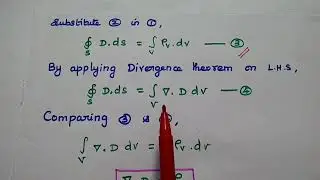 Substitute ② in ①,
∮_S D.ds = ∫_V ρ_v.dv — ③
By applying Divergence theorem on L.H.S,
∮_S D.ds = ∫_V ∇. D dv — ④
Comparing ③ &
∫_V ∇. D dv = ρ_v.dv
∇. D